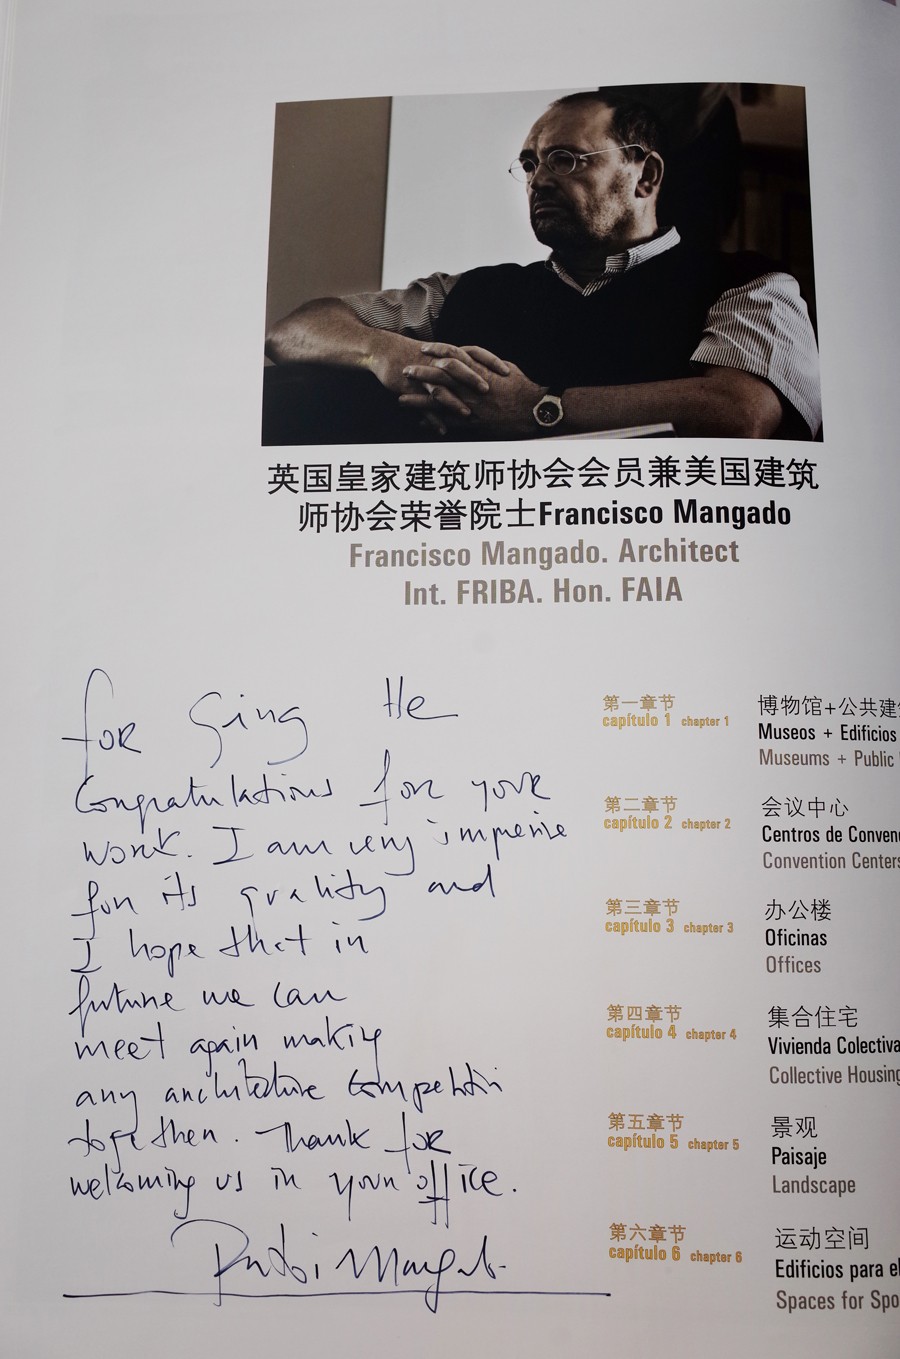 英国皇家建筑师协会会员兼美国建筑
师协会荣誉院士Francisco Mangado
Francisco Mangado. Architect
Int. FRIBA. Hon. FAIA
for Ging He
Congratulations for your
work. I am very impresise
for its quality and
I hope that in
future we can
meet again making
any architecture competition
together. Thank for
welcoming us in your office.
Patxi Mangado
第一章节
capítulo 1 chapter 1
博物馆+公共建筑
Museos + Edificios
Museums + Public
第二章节
capítulo 2 chapter 2
会议中心
Centros de Conven
Convention Centers
第三章节
capítulo 3 chapter 3
办公楼
Oficinas
Offices
第四章节
capítulo 4 chapter 4
集合住宅
Vivienda Colectiva
Collective Housing
第五章节
capítulo 5 chapter 5
景观
Paisaje
Landscape
第六章节
capítulo 6 chapter 6
运动空间
Edificios para el
Spaces for Spo